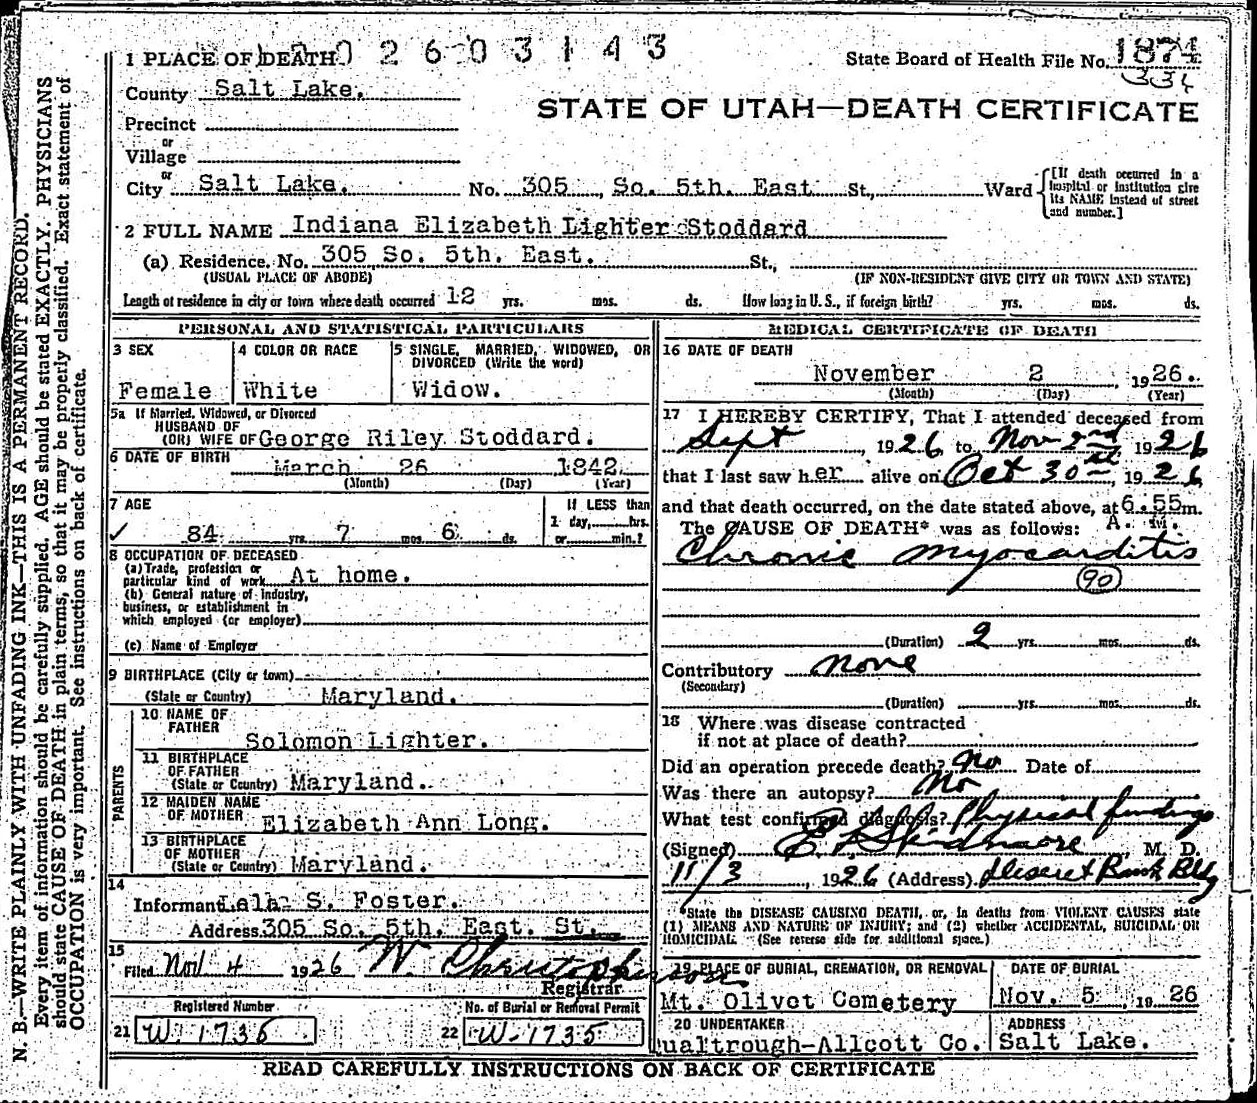 N. B.—WRITE PLAINLY WITH UNFADING INK—THIS IS A PERMANENT RECORD.
Every item of information should be carefully supplied. AGE should be stated EXACTLY. PHYSICIANS
should state CAUSE OF DEATH in plain terms, so that it may be properly classified. Exact statement of
OCCUPATION is very important. See instructions on back of certificate.
1 PLACE OF DEATH 0 2 6 0 3 1 4 3
State Board of Health File No. 1874
334
County Salt Lake.
STATE OF UTAH—DEATH CERTIFICATE
Precinct
or
Village
or
City Salt Lake. No. 305 So. 5th. East St., Ward
[If death occurred in a
hospital or institution give
its NAME instead of street
and number.]
2 FULL NAME Indiana Elizabeth Lighter Stoddard
(a) Residence. No. 305 So. 5th. East. St.,
(USUAL PLACE OF ABODE) (IF NON-RESIDENT GIVE CITY OR TOWN AND STATE)
Length of residence in city or town where death occurred 12 yrs. mos. ds. How long in U. S., if foreign birth? yrs. mos. ds.
PERSONAL AND STATISTICAL PARTICULARS
3 SEX 4 COLOR OR RACE 5 SINGLE, MARRIED, WIDOWED, OR
DIVORCED (Write the word)
Female White Widow.
5a If Married, Widowed, or Divorced
HUSBAND OF
(OR) WIFE OF George Riley Stoddard.
6 DATE OF BIRTH March 26 1842
(Month) (Day) (Year)
7 AGE If LESS than
1 day, hrs.
✓ 84 yrs. 7 mos. 6 ds. or min.?
8 OCCUPATION OF DECEASED
(a) Trade, profession or
particular kind of work At home.
(b) General nature of industry,
business, or establishment in
which employed (or employer)
(c) Name of Employer
9 BIRTHPLACE (City or town)
(State or Country) Maryland.
PARENTS
10 NAME OF
FATHER
Solomon Lighter.
11 BIRTHPLACE
OF FATHER
(State or Country) Maryland.
12 MAIDEN NAME
OF MOTHER
Elizabeth Ann Long.
13 BIRTHPLACE
OF MOTHER
(State or Country) Maryland.
14
Informant Lela S. Foster.
Address 305 So. 5th. East. St.
15
Filed Nov 4 1926 W Christopherson
Registrar
Registered Number No. of Burial or Removal Permit
21 W-1735 22 W-1735
MEDICAL CERTIFICATE OF DEATH
16 DATE OF DEATH
November 2, 1926.
(Month) (Day) (Year)
17 I HEREBY CERTIFY, That I attended deceased from
Sept 1926 to Nov 2nd, 1926
that I last saw her alive on Oct 30th, 1926,
and that death occurred, on the date stated above, at 6.55 m.
The CAUSE OF DEATH* was as follows: A. M.
Chronic myocarditis
90
(Duration) 2 yrs. mos. ds.
Contributory none
(Secondary)
(Duration) yrs. mos. ds.
18 Where was disease contracted
if not at place of death?
Did an operation precede death? No Date of
Was there an autopsy? No
What test confirmed diagnosis? Physical findings
(Signed) E. L. Skidmore, M. D.
11/3, 1926 (Address) Deseret Bank Bldg
*State the DISEASE CAUSING DEATH, or, in deaths from VIOLENT CAUSES state
(1) MEANS AND NATURE OF INJURY; and (2) whether ACCIDENTAL, SUICIDAL OR
HOMICIDAL. (See reverse side for additional space.)
19 PLACE OF BURIAL, CREMATION, OR REMOVAL DATE OF BURIAL
Mt. Olivet Cemetery Nov. 5, 1926
20 UNDERTAKER ADDRESS
ualtrough-Allcott Co. Salt Lake.
READ CAREFULLY INSTRUCTIONS ON BACK OF CERTIFICATE